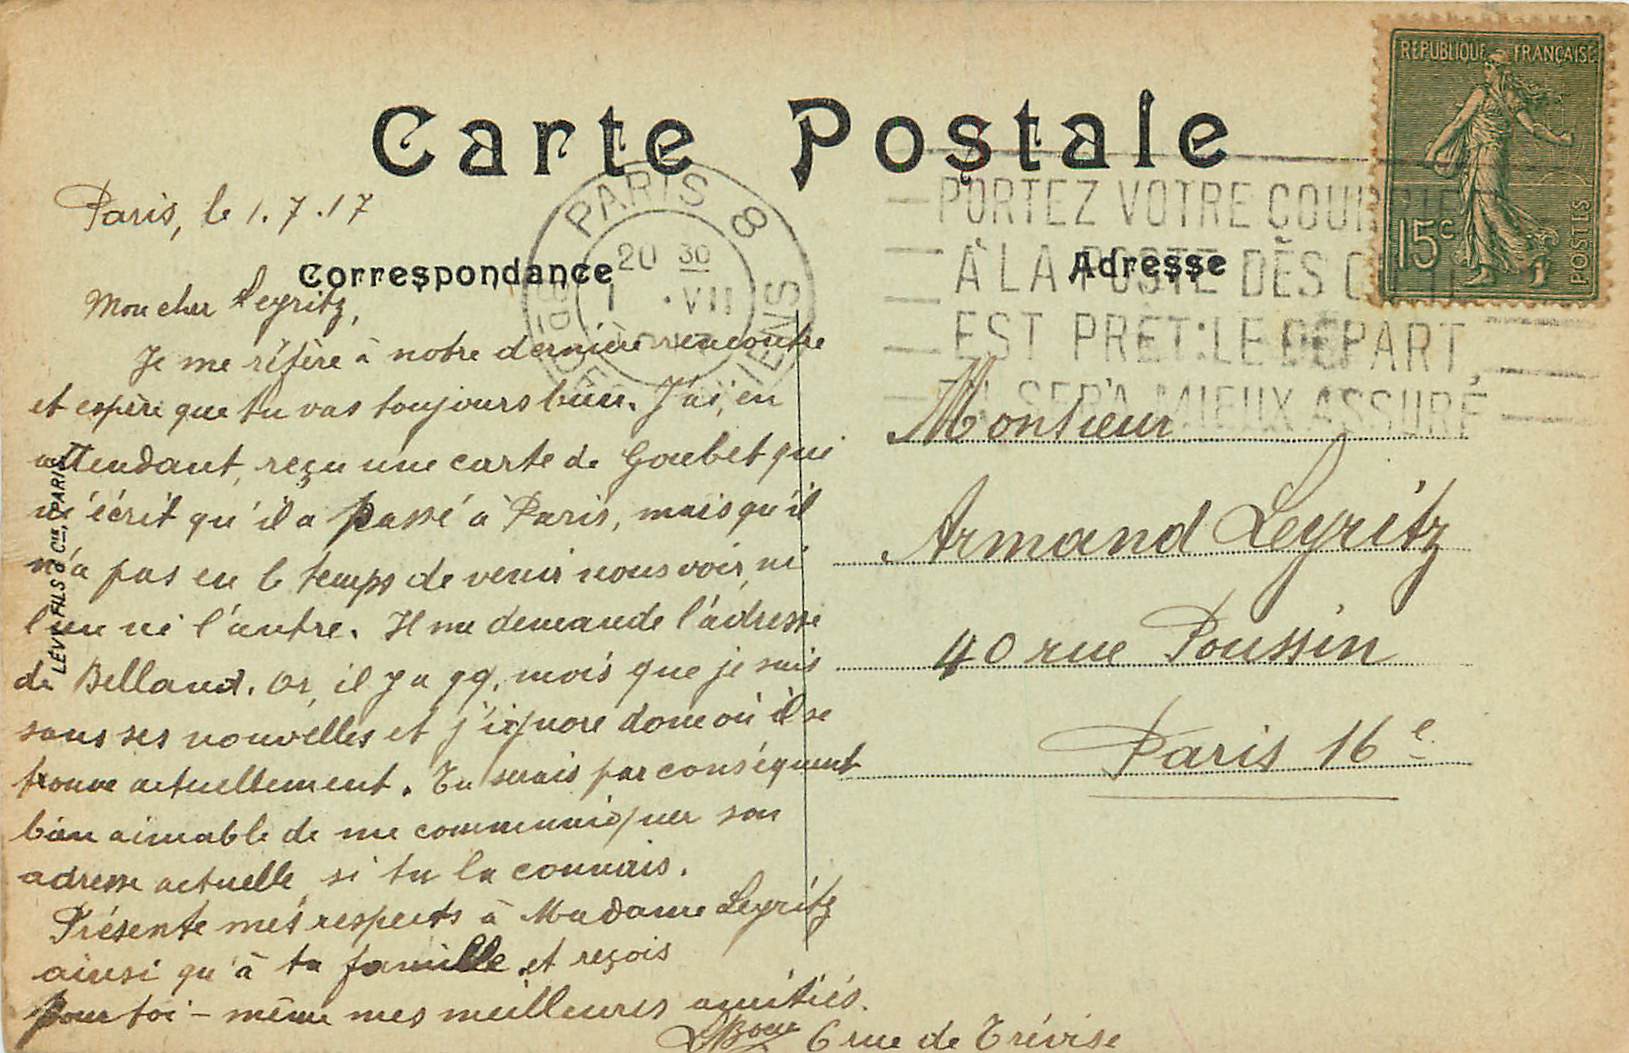 Carte Postale
RÉPUBLIQUE FRANÇAISE
15c
POSTES
PARIS 8
20 30
1 · VII
PORTEZ VOTRE COURRIE
À LA POSTE DÈS
EST PRET: LE DÉPART,
SERA MIEUX ASSURÉ
Paris, le 1.7.17
Correspondance
Mon cher Leyritz,
Je me réfère à notre dernière rencontre
et espère que tu vas toujours bien. J'ai, en
attendant, reçu une carte de Goubet qui
m'écrit qu'il a passé à Paris, mais qu'il
n'a pas eu le temps de venir nous voir, ni
l'un ni l'autre. Il me demande l'adresse
de Belland. Or, il y a qq. mois que je suis
sans ses nouvelles et j'ignore donc où il se
trouve actuellement. Tu serais par conséquent
bien aimable de me communiquer son
adresse actuelle, si tu la connais.
Présente mes respects à Madame Leyritz
ainsi qu'à ta famille et reçois
pour toi-même mes meilleures amitiés.
6 rue de Trévise
LÉVY FILS & Cie, PARIS
Adresse
Monsieur
Armand Leyritz
40 rue Poussin
Paris 16e